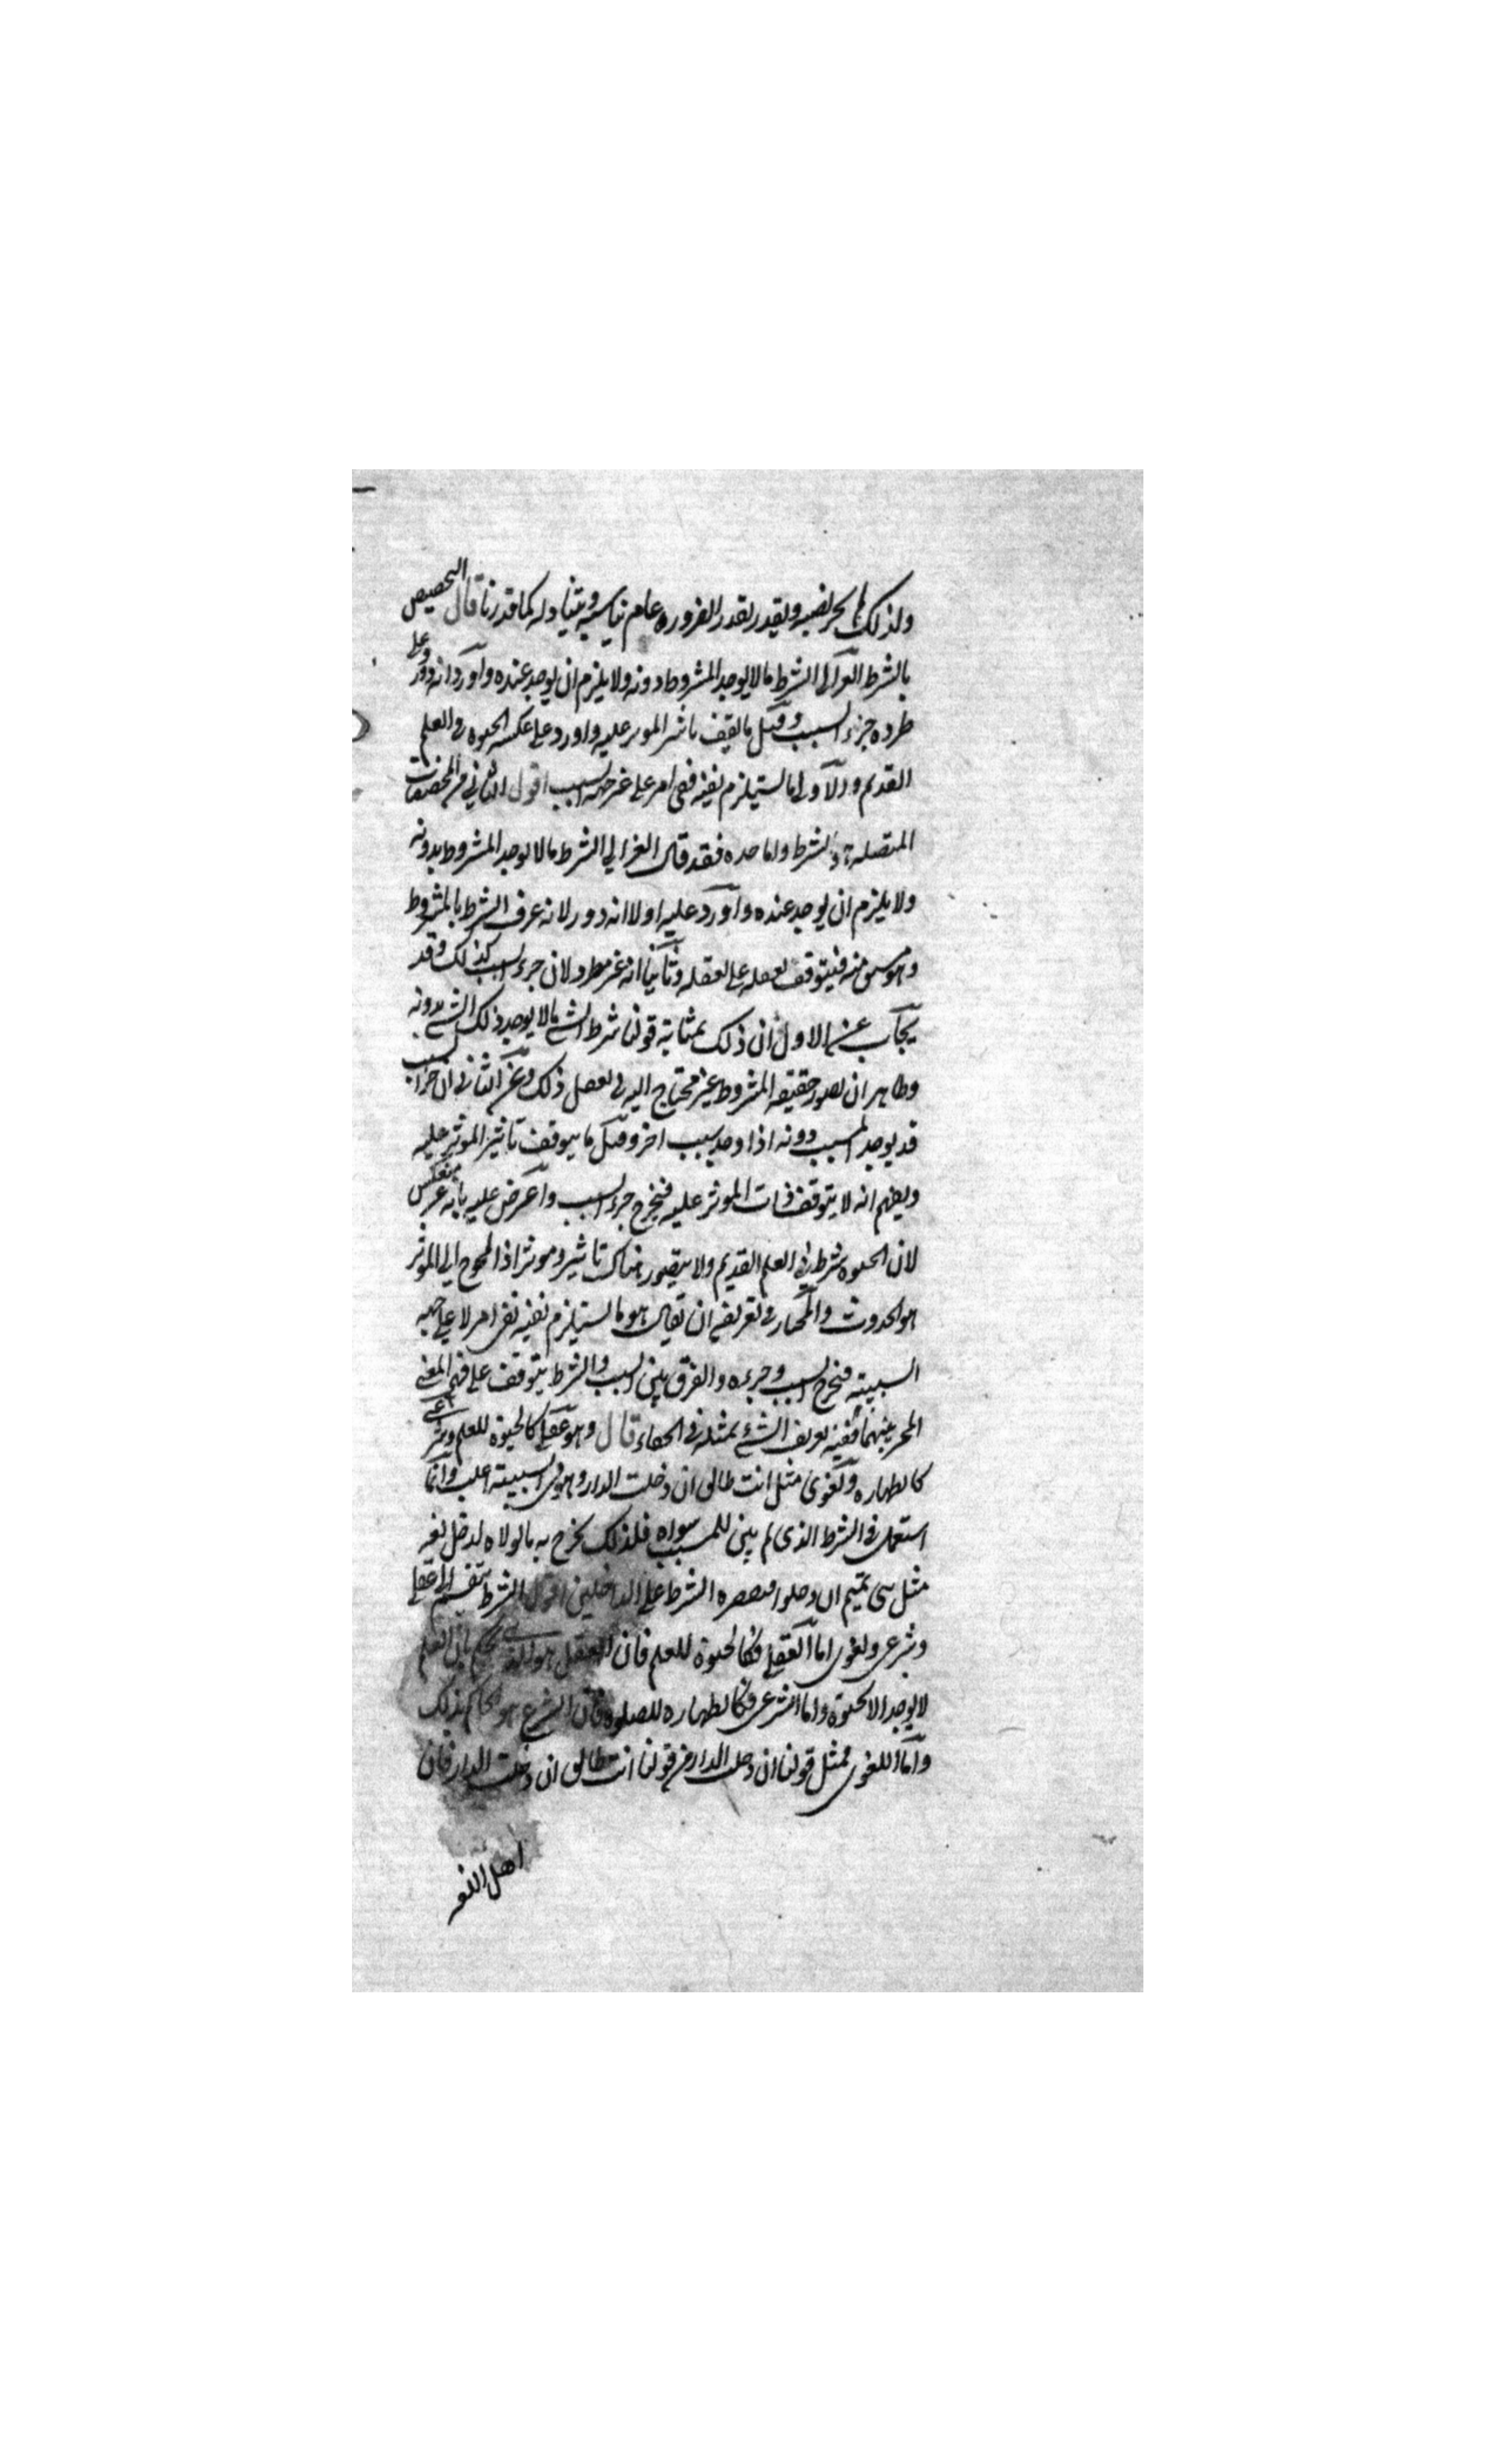 ولذلك لم يجز نصبه ويقدر بقدر الضرورة عام يناسبه ويتناوله كما قدرنا قال التخصيص
بالشرط الغزالي الشرط ما لا يوجد المشروط دونه ولا يلزم ان يوجد عنده واورد انه دور وعلى
طرده جزء السبب وقيل ما يقف تأثير المؤثر عليه واورد على عكسه الحيوة في العلم
القديم والاولى ما يستلزم نفيه نفي امر على غير جهة السبب اقول الثاني من المخصصات
المتصلة الشرط واما حده فقد قال الغزالي الشرط ما لا يوجد المشروط بدونه
ولا يلزم ان يوجد عنده واورد عليه اولا انه دور لانه عرف الشرط بالمشروط
وهو مشتق منه فيتوقف تعقله على تعقله وثانيا انه غير مطرد لان جزء السبب كذلك وقد
يجاب عن الاول ان ذلك بمثابة قولنا شرط الشئ ما لا يوجد ذلك الشئ بدونه
وظاهر ان تصور حقيقة المشروط غير محتاج اليه في تعقل ذلك وعن الثاني ان جزء السبب
قد يوجد المسبب دونه اذا وجد سبب اخر وقيل ما يتوقف تأثير المؤثر عليه
ويفهم انه لا يتوقف ذات المؤثر عليه فيخرج جزء السبب واعترض عليه بانه غير منعكس
لان الحيوة شرط في العلم القديم ولا يتصور هناك تاثير ومؤثر اذ المحوج الى المؤثر
هو الحدوث والمختار في تعريفه ان يقال هو ما يستلزم نفيه نفي امر لا على جهة
السببية فيخرج السبب وجزءه والفرق بين السبب والشرط يتوقف على فهم المعنى
المميز بينهما ففيه تعريف الشئ بمثله في الخفاء قال وهو عقلي كالحيوة للعلم وشرعي
كالطهارة ولغوي مثل انت طالق ان دخلت الدار وهو في السببية اغلب وانما
استعمل في الشرط الذي لم يبق للمسبب سواه فلذلك يخرج به ما لولاه لدخل لغة
مثل بني تميم ان دخلوا فيقصره الشرط على الداخلين اقول الشرط ينقسم الى عقلي
وشرعي ولغوي اما العقلي فكالحيوة للعلم فان العقل هو الذي يحكم بان العلم
لا يوجد الا بحيوة واما الشرعي فكالطهارة للصلوة فان الشرع هو الحاكم بذلك
واما اللغوي فمثل قولنا ان دخلت الدار من قولنا انت طالق ان دخلت الدار فان
اهل اللغة